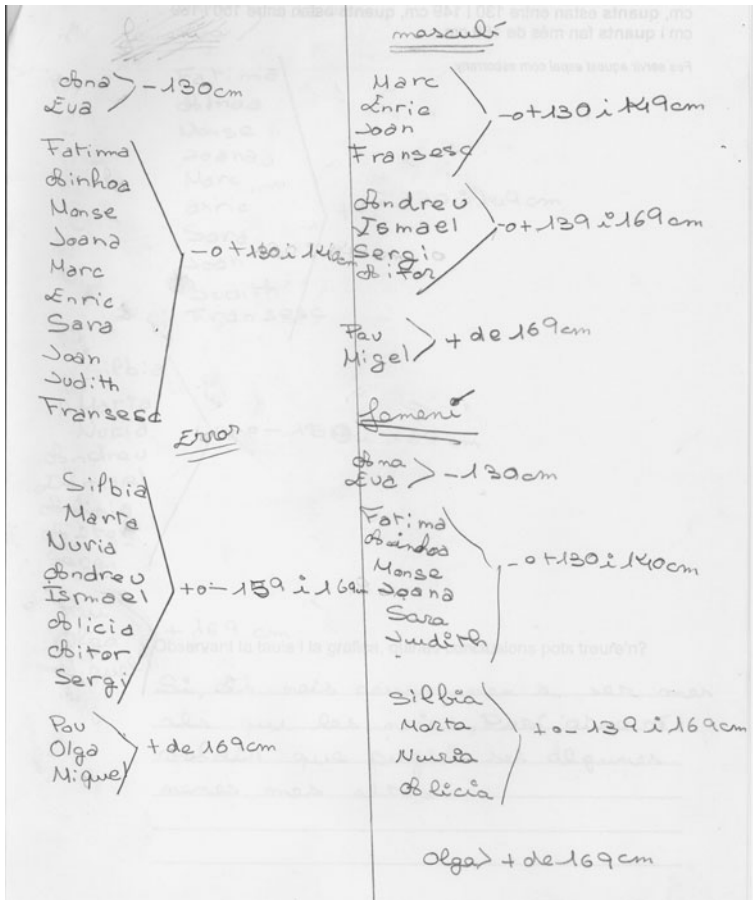 Ana
Eva
-130cm
Fatima
Ainhoa
Monse
Joana
Marc
Enric
Sara
Joan
Judith
Fransesc
-o+130 i 149cm
Error
Silbia
Marta
Nuria
Andreu
Ismael
Alicia
Aitor
Sergi
+o- 159 i 169cm
Pau
Olga
Miquel
+ de 169cm
masculí
Marc
Enric
Joan
Fransesc
-o+130 i 149cm
Andreu
Ismael
Sergi
Aitor
-o+ 139 i 169cm
Pau
Migel
+ de 169cm
femení
Ana
Eva
-130cm
Fatima
Ainhoa
Monse
Joana
Sara
Judith
-o+130 i 140cm
Silbia
Marta
Nuria
Alicia
+o- 139 i 169cm
Olga
+ de 169cm